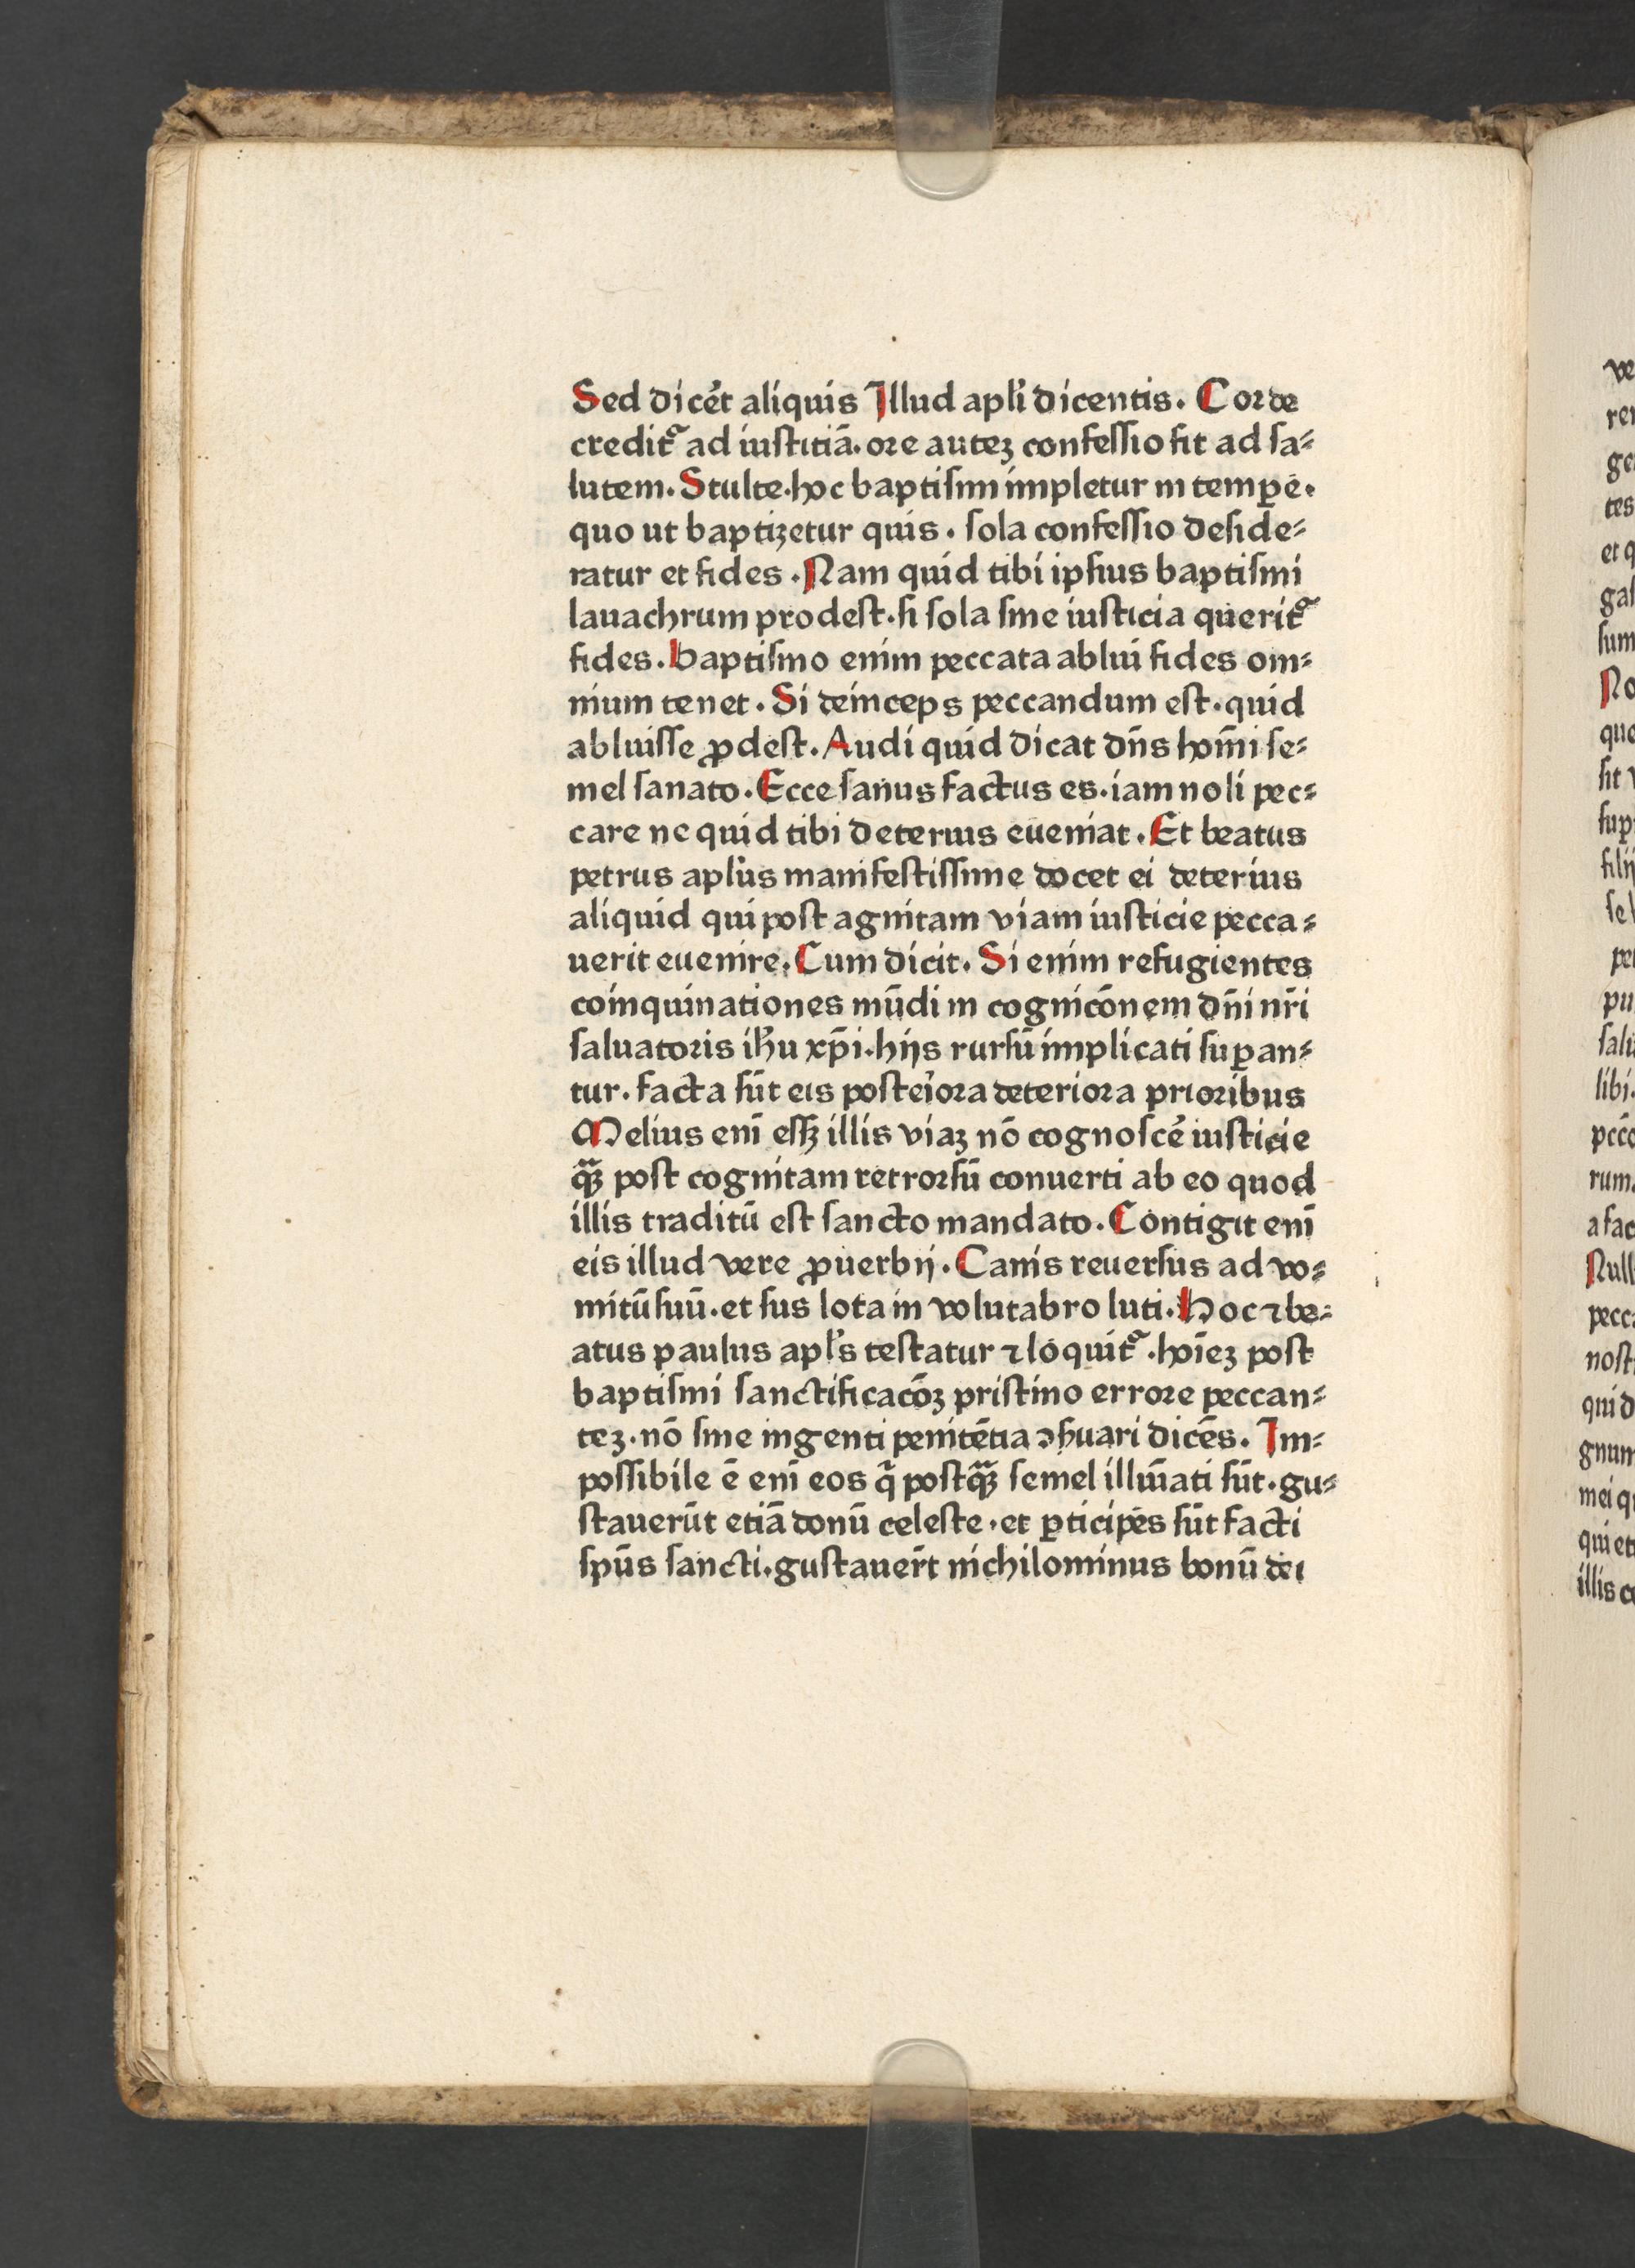 Sed dicet̉ aliquis Illud apl'i dicentis. Corde
credit᷑ ad iustitiā. ore autez confessio fit ad sa⸗
lutem. Stulte. hoc baptismi impletur in temꝑe.
quo ut baptizetur quis. sola confessio deside⸗
ratur et fides. Nam quid tibi ipsius baptismi
lauachrum prodest. si sola sine iusticia querit᷑
fides. Baptismo enim peccata ablui fides om⸗
nium tenet. Si deinceps peccandum est. quid
abluisse ꝓdest. Audi quid dicat dn̄s hoīni se⸗
mel sanato. Ecce sanus factus es. iam noli pec⸗
care ne quid tibi deterius eueniat. Et beatus
petrus apl'us manifestissime docet ei deterius
aliquid qui post agnitam viam iusticie pecca⸗
uerit euenire. Cum dicit. Si enim refugientes
coinquinationes mūdi in cognicōnem dn̄i nr̄i
saluatoris ih'u xp̄i. hijs rursū implicati suꝑan⸗
tur. facta sūt eis posteiora deteriora prioribus
Melius eni̅ essꝫ illis viaz nō cognoscē iusticie
qᷓꝫ post cognitam retrorsū conuerti ab eo quod
illis traditū est sancto mandato. Contigit eni̅
eis illud vere ꝓuerbij. Canis reuersus ad vo⸗
mitū suū. et sus lota in volutabro luti. Hoc ⁊ be⸗
atus paulus apl's testatur ⁊ loquit᷑. hoīez post
baptismi sanctificacōz pristino errore peccan⸗
tez. nō sine ingenti penitētia ꝯseruari dicēs. Im⸗
possibile ē eni̅ eos q̄ postqᷓꝫ semel illuīati sūt. gu⸗
stauerūt etiā donū celeste. et ꝑticipes sūt facti
spūs sancti. gustauer̄t nichilominus bonū dei